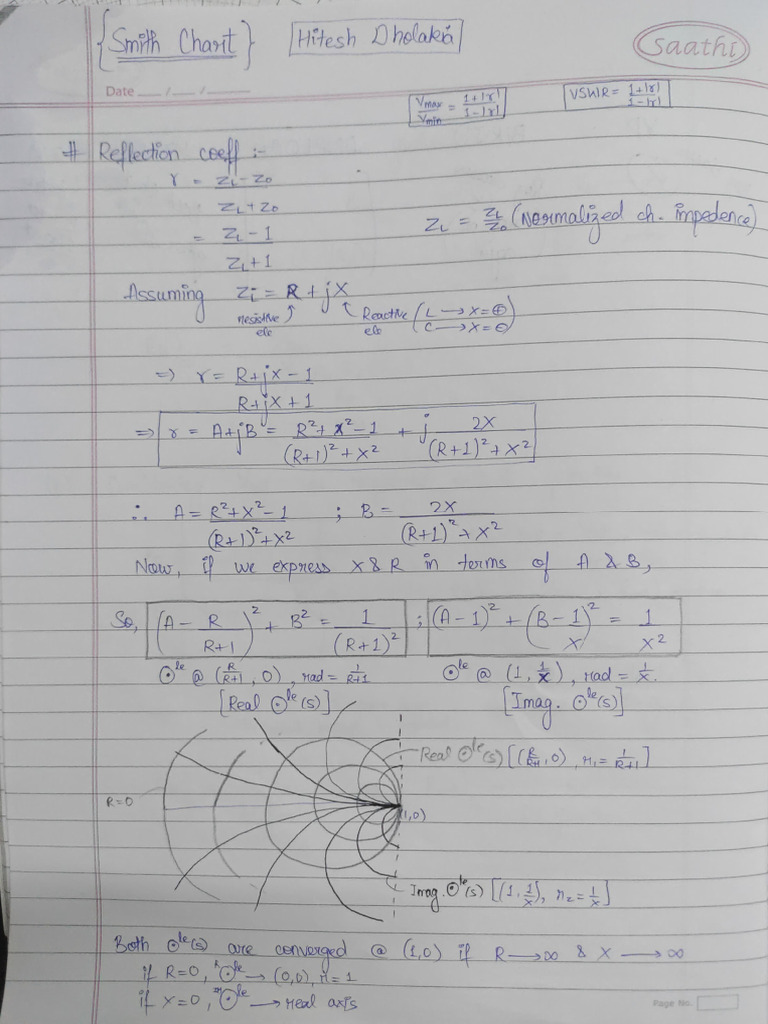 {Smith Chart} Hitesh Dholakia saathi
Date __/__/____
Vmax/Vmin = 1+|r|/1-|r| VSWR = 1+|r|/1-|r|
# Reflection coeff :-
r = ZL - Z0 / ZL + Z0
= ZL - 1 / ZL + 1
ZL = ZL/Z0 (Normalized ch. impedence)
Assuming Zi = R + jX
resistive ele ↑ ↖ Reactive ele (L → X = ⊕
C → X = ⊖)
⇒ r = R+jX-1 / R+jX+1
⇒ r = A+jB = R²+X²-1 / (R+1)²+X² + j 2X / (R+1)²+X²
∴ A = R²+X²-1 / (R+1)²+X² ; B = 2X / (R+1)²+X²
Now, if we express X & R in terms of A & B,
So, (A - R/R+1)² + B² = 1/(R+1)² ; (A-1)² + (B - 1/X)² = 1/X²
⊙le @ (R/R+1, 0), rad = 1/R+1 ⊙le @ (1, 1/X), rad = 1/X.
[Real ⊙le(s)] [Imag. ⊙le(s)]
Real ⊙le(s) [(R/R+1, 0), r1 = 1/R+1]
R=0
(1,0)
Imag. ⊙le(s) [(1, 1/X), r2 = 1/X]
Both ⊙le(s) are converged @ (1,0) if R → ∞ & X → ∞
if R=0, R⊙le → (0,0), r = 1
if X=0, ⊙le → real axis
Page No.